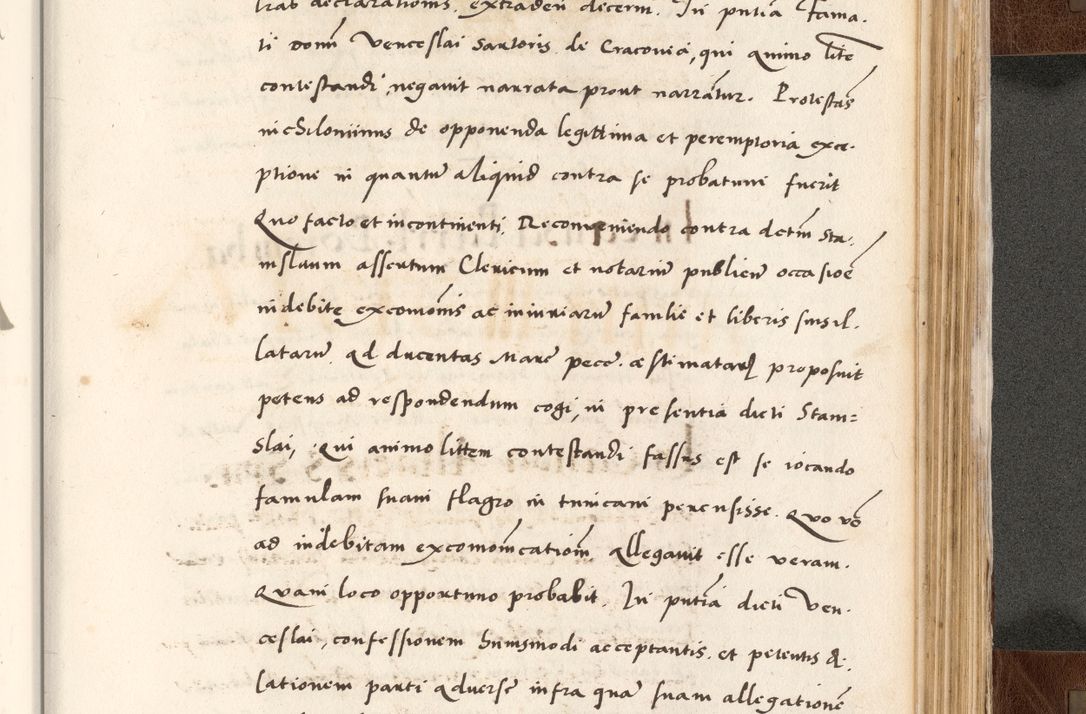 tras declarationis. extradeń decerni. In pntia Fama.
ti domī Venceslai Sartoris de Cracovia, qui animo lite
contestandi, negavit narrata prout narrātur. Protestās
nichilominus de opponenda legittima et peremptoria exce.
ptione in quantū aliquid contra se probatum fuerit
Quo facto et incontinenti, Reconveniendo contra dctm Sta.
nislaum assertum Clericum et notariū publicū occasioē
indebite excomōnis ac iniuriarū familie et liberis suis il.
latarū. ad ducentas Marc pecc. æstimatarꝝ proposuit
petens ad respondendum cogi, in presentia dicti Stani=
slai, Qui animo littem contestandi fassus est se iocando
famulam suam flagro in tunicam percussisse. Quo vō
ad indebitam excomōnicationē allegavit esse veram.
Quam loco opportuno probabit. In pntiā dicti Ven.
ceslai, confessionem huiusmodi acceptantis. et petentis de.
lationem parti adverse infra quā suam allegationē